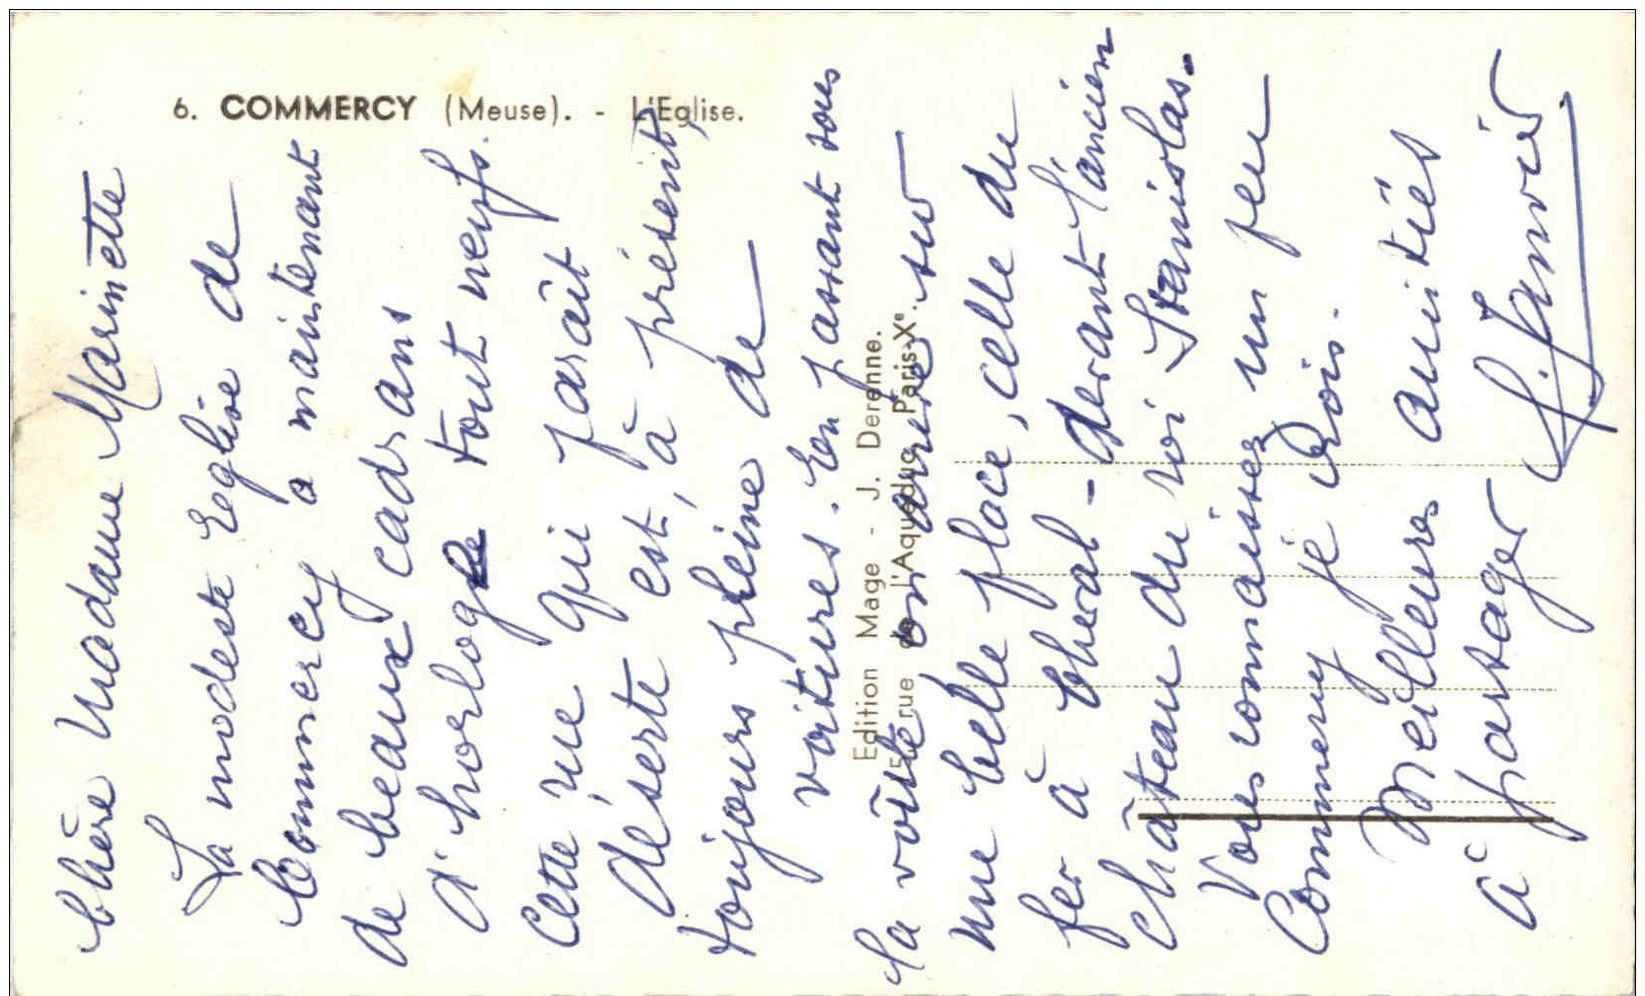 6. COMMERCY (Meuse). - L'Eglise.
Chère Madame Marinette
La modeste Eglise de
Commercy a maintenant
de beaux cadrans
d'horloge tout neufs.
Cette rue qui paraît
déserte est, à présent,
toujours pleine de
voitures. En passant sous
la voûte on arrive sur
une belle place, celle du
fer à cheval - devant l'ancien
château du roi Stanislas.
Vous connaissez un peu
Commercy je crois.
Meilleures amitiés
à partager
Edition Mage - J. Derenne.
rue de l'Aqueduc, Paris-Xe.